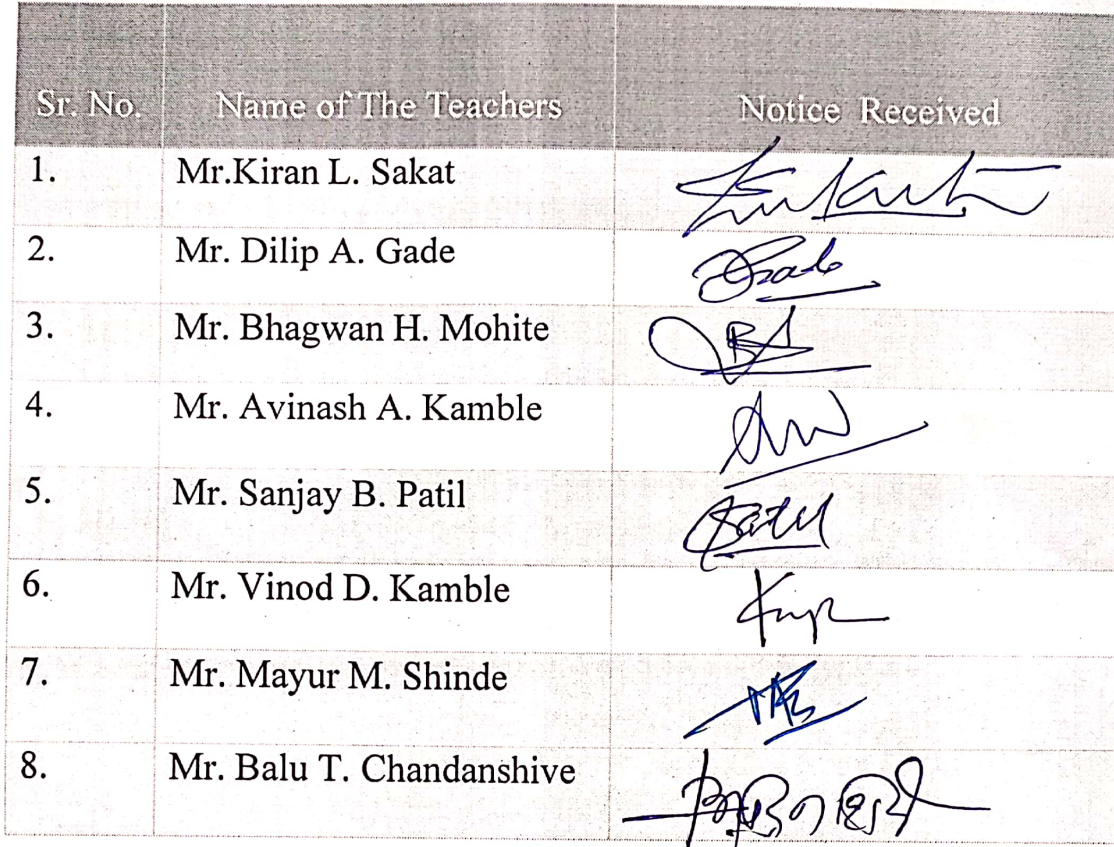 Sr. No. Name of The Teachers Notice Received
1. Mr.Kiran L. Sakat
2. Mr. Dilip A. Gade
3. Mr. Bhagwan H. Mohite
4. Mr. Avinash A. Kamble
5. Mr. Sanjay B. Patil
6. Mr. Vinod D. Kamble
7. Mr. Mayur M. Shinde
8. Mr. Balu T. Chandanshive